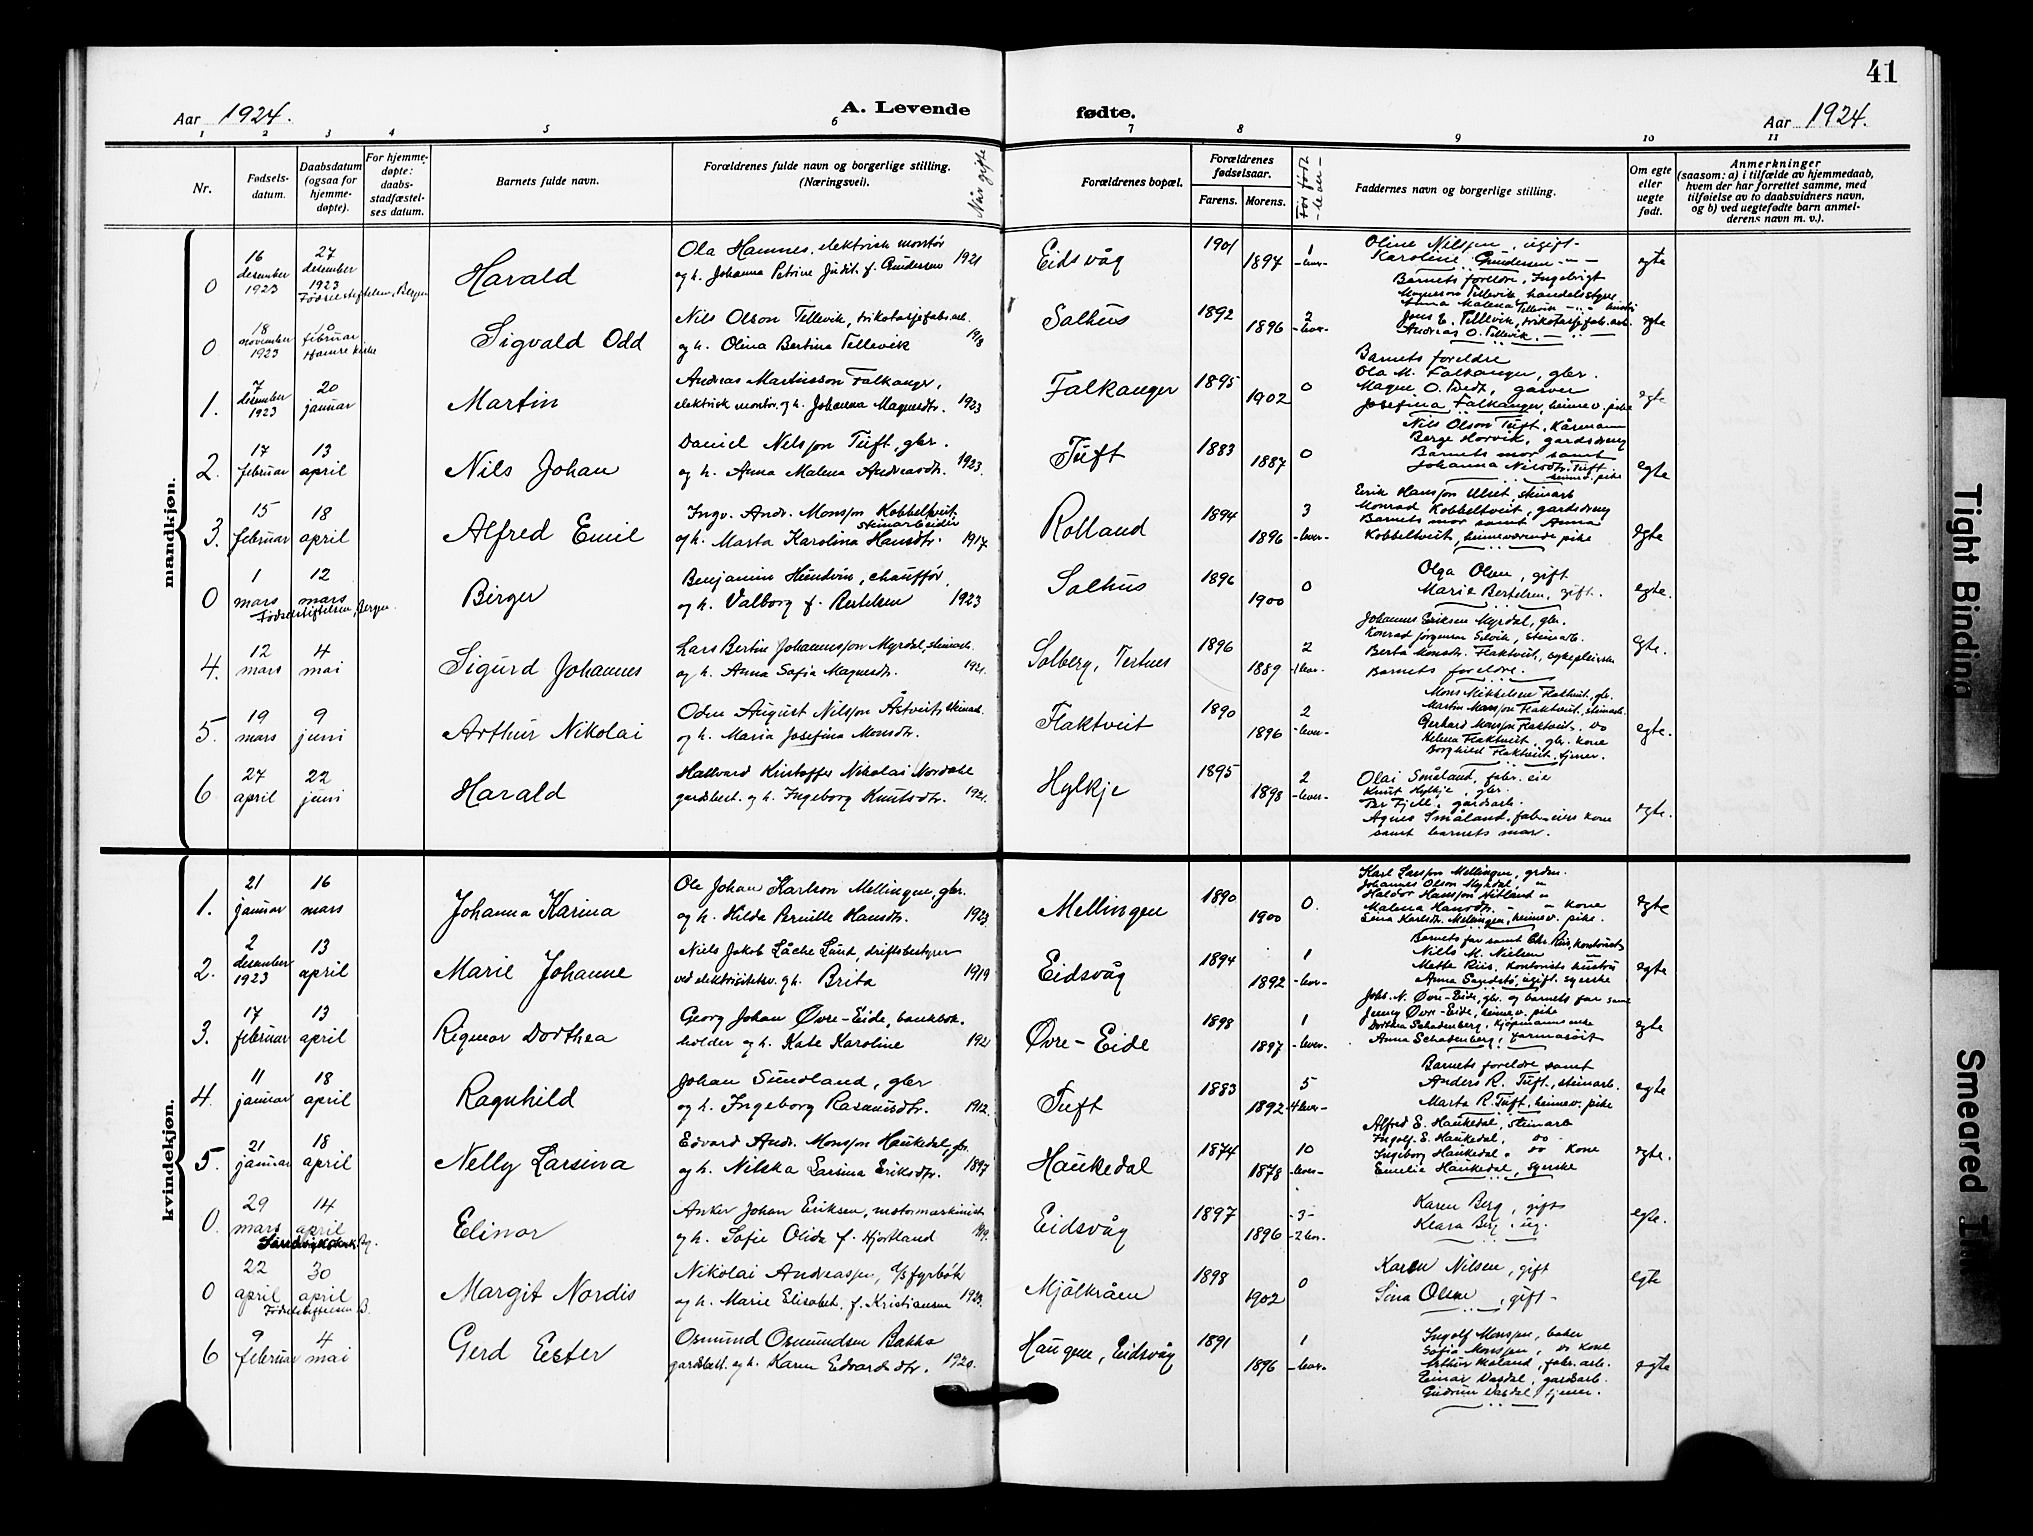 41
Aar 1924.
A. Levende fødte.
Aar 1924.
1 2 3 4 5 6 7 8 9 10 11
Nr.
Fødsels-
datum.
Daabsdatum
(ogsaa for
hjemme-
døpte).
For hjemme-
døpte:
daabs-
stadfæstel-
ses datum.
Barnets fulde navn.
Forældrenes fulde navn og borgerlige stilling.
(Næringsvei).
Når gifte
Forældrenes bopæl.
Forældrenes
fødselsaar.
Farens. Morens.
Faddernes navn og borgerlige stilling.
Om egte
eller
uegte
født.
Anmerkninger
(saasom: a) i tilfælde av hjemmedaab,
hvem der har forrettet samme, med
tilføielse av to daabsvidners navn,
og b) ved uegtefødte barn anmel-
derens navn m. v.).
mandkjøn.
0 16 desember 1923 27 desember 1923 Fødselsstiftelsen, Bergen Harald
Ola Hamnes, elektrisk montør
og h. Johanna Petrine Judit f. Gundersen 1921
Eidsvåg 1901 1897 1 -lever- egte
Oline Nilsen, ugift-
Karoline Gundersen - " -
0 18 november 1923 februar Hamre kirke Sigvald Odd
Nils Olson Tellevik, trikotasjefabr.arb.
og h. Olina Bertina Tellevik 1918
Salhus 1892 1896 2 -lever- egte
Barnets foreldre, Ingebrigt
Magnusson Tellevik, handelsstyrer
Anna Malena Tellevik
Jens E. Tellevik, trikotasjefabr.arb.
Andreas O. Tellevik
1. 7 desember 1923 20 januar Martin
Andreas Martinsson Falkanger,
elektrisk montør, og h. Johanna Magnesdtr. 1923
Falkanger 1895 1902 0 egte
Barnets foreldre
Ola M. Falkanger, gbr.
Magne O. Tvedt, garver
Josefina Falkanger, heimev. pike
2. 17 februar 13 april Nils Johan
Daniel Nelsson Tuft, gbr.
og h. Anna Malena Andreasdtr. 1923.
Tuft 1883 1887 0 egte
Nils Olson Tuft, kårmann
Berge Horvik, gardsdreng
Barnets mor samt
Johanna Nilsdtr. Tuft
heimev. pike
3. 15 februar 18 april Alfred Emil
Ingv. Andr. Monsson Kobbeltveit,
steinarbeider
og h. Marta Karolina Hansdtr. 1917
Rolland 1894 1896 3 -lever- egte
Eirik Hansson Ulset, steinarb
Monrad Kobbeltveit, gardsdreng
Barnets mor samt Anna
Kobbeltveit, heimeværende pike
0 1 mars 12 mars Fødselsstiftelsen, Bergen. Birger
Benjamin Hundvin, chauffør
og h. Valborg f. Bertelsen 1923
Salhus 1896 1900 0 egte.
Olga Olsen, gift
Marie Bertelsen, gift.
4. 12 mars 4 mai Sigurd Johannes
Lars Bertin Johannesson Myrdal, steinarb.
og h. Anna Sofia Magnesdtr. 1921.
Solberg, Tertnes 1896 1889 2 -1 lever- egte.
Johannes Eriksen Myrdal, gbr.
Konrad Jørgensen Selvik, steinarb.
Berta Monsdtr. Flaktveit, sykepleierske
Barnets foreldre.
5. 19 mars 9 juni Arthur Nikolai
Odin August Nilsson Åstveit, steinarb.
og h. Maria Josefina Monsdtr.
Flaktveit 1890 1896 2 -lever- egte.
Mons Mikkelsen Flaktveit, gbr.
Martin Monsson Flaktveit, steinarb.
Gerhard Monsson Flaktveit, do
Helena Flaktveit, gbr. kone
Borghild Flaktveit, tjener.
6 27 april 22 juni Harald
Hallvard Kristoffer Nikolai Nordahl
gardsbest. og h. Ingeborg Knutsdtr. 1921.
Hylkje 1895 1898 2 -lever- egte.
Olai Småland, fabr. eier
Knut Hylkje, gbr.
Br Fjell, gardsarb.
Agnes Småland, fabr.eiers kone
samt barnets mor.
kvindekjøn.
1. 21 januar 16 mars Johanna Karina
Ole Johan Karlson Mellingen, gbr.
og h. Hilda Pernille Hansdtr. 1923.
Mellingen 1890 1900 0. egte
Karl Larsson Mellingen, grdbr.
Johannes Olson Myhdal, "
Haldor Hansson Hitland "
Malena Hansdtr. - " - kone
Lina Karlsdtr. Mellingen, heimev. pike.
2. 2 desember 1923 13 april Marie Johanne
Niels Jakob Låche Lunt, driftsbestyrer
ved elektrisitetsv. og h. Brita 1919
Eidsvåg 1894 1892 1 -lever- egte
Barnets far samt Chr. Riis, kontorist
Nills M. Nielsen "
Mette Riis, kontorists hustru
Anna Sandstø, ugift syerske
3. 17 februar 13 april Rigmor Dorthea
Georg Johan Øvre-Eide, bankbok-
holder og h. Kate Karoline 1921
Øvre-Eide 1898 1897 1 -lever- egte
Johs. N. Øvre-Eide, gbr. og barnets far samt
Jenny Øvre-Eide, heimev. pike
Dorthea Schadenberg, kjøpmanns enke
Anna Schadenberg, farmasøit
4. 11 januar 18 april Ragnhild
Johan Sundland, gbr
og h. Ingeborg Rasmusdtr. 1912.
Tuft 1883 1892 5 4 lever- egte
Barnets foreldre samt
Anders R. Tuft, steinarb.
Marta R. Tuft, heimev. pike
5. 21 januar 18 april Nelly Larsina
Edvard Andr. Monsson Haukedal, gbr.
og h. Nilska Larsina Eriksdtr. 1897
Haukedal 1874 1878 10 -lever- egte.
Alfred E. Haukedal, steinarb
Ingolf E. Haukedal, do
Ingeborg Haukedal, do kone
Emelie Haukedal, syerske
0. 29 mars 14 april Elinor
Anker Johan Eriksen, motormaskinist
og h. Sofie Olida f. Hjortland 1919.
Eidsvåg 1897 1896 -3- -2 lev.- egte.
Karen Berg, gift
Klara Berg, ug.
0 22 april 30 april Fødselsstiftelsen B. Margit Nordis
Nikolai Andreassen, fyrbøt
og h. Marie Elisabet, f. Kristiansen 1923.
Mjölkråen 1898 1902 0 egte
Karen Nilsen, gift
Sina Olsen, gift-
6 9 februar 4 mai Gerd Ester
Osmund Osmundsen Bakka
gardsbest. og h. Karen Edvardsdtr. 1920.
Haugene, Eidsvåg 1891 1896 1 -lever- egte
Ingolf Monssen, baker
Sofia Monssen, do kone
Arthur Moland, fabr. arb.
Einar Vasdal, gardsarb.
Gudrun Vasdal, tjener.
Tight Binding
Smeared